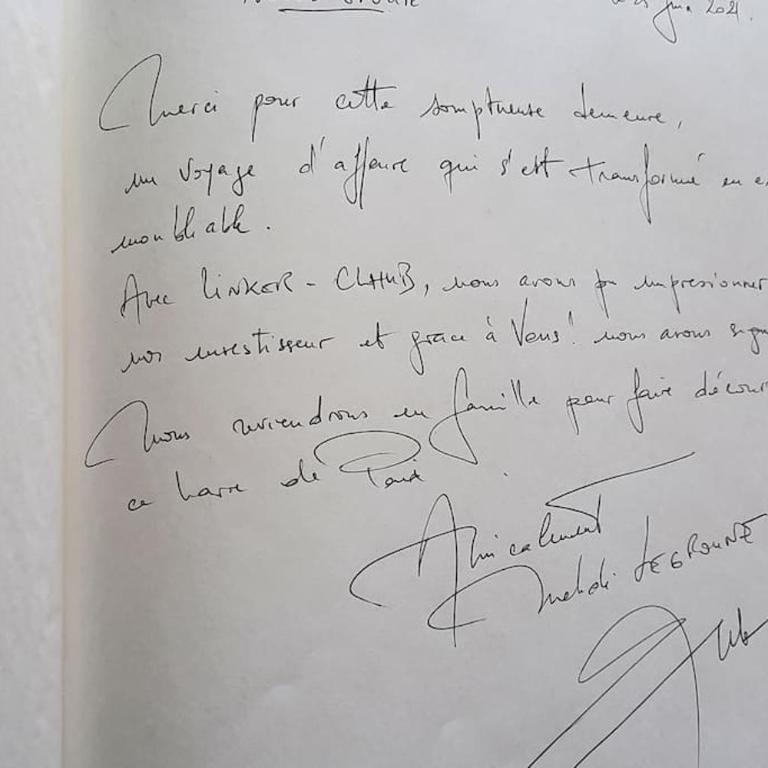 juin 2021.
Merci pour cette somptueuse demeure,
un voyage d'affaire qui s'est transformé en
inoubliable.
Avec LINKER - CLHUB, nous avons pu impressionner
nos investisseur et grace à Vous! nous avons
Nous reviendrons en famille pour faire
ce havre de Paix
Amicalement
Mehdi